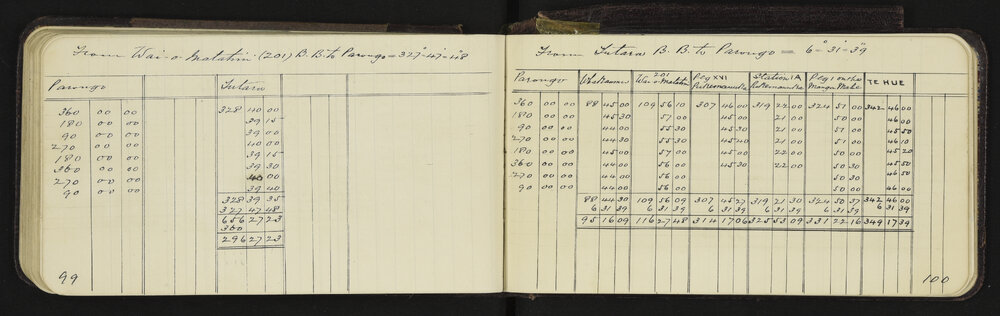 From Wai-o-Matatini (201) B.B. to Parongo = 327°-47'-48"
Parongo Tutara
360 00 00 328 40 00
180 00 00 39 15
90 00 00 39 00
270 00 00 40 00
180 00 00 39 15
360 00 00 39 30
270 00 00 40 00
90 00 00 39 40
328 39 35
327 47 48
656 27 23
360
296 27 23
99
From Tutara B.B. to Parongo = 6°-31'-39"
Parongo 201 Wai-o-Matatini Peg XVI Station 1A Peg 1 on the TE HUE
360 00 00 88 45 00 109 56 10 307 46 00 319 22 00 324 51 00 342 46 00
180 00 00 45 30 57 00 45 00 21 00 50 00 46 00
90 00 00 44 00 55 30 45 30 21 00 51 00 45 50
270 00 00 44 30 55 30 45 40 21 00 51 00 46 10
180 00 00 44 00 57 00 45 00 22 00 50 00 45 20
360 00 00 44 00 56 00 45 30 22 00 50 30 45 50
270 00 00 44 00 56 00 50 30 46 00
90 00 00 44 00 56 00 50 00 46 00
88 44 30 109 56 09 307 45 27 319 21 30 324 50 37 342 46 00
6 31 39 6 31 39 6 31 39 6 31 39 6 31 39 6 31 39
95 16 09 116 27 48 314 17 06 325 53 09 331 22 16 349 17 39
100